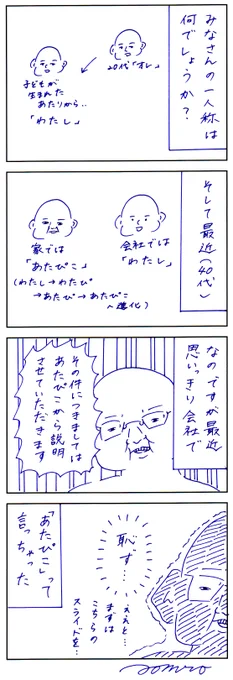 みなさんの一人称は
何でしょうか？
20代「オレ」
子どもが
生まれた
あたりから‥
「わたし」
そして最近（40代）
会社では
「わたし」
家では
「あたぴこ」
（わたし→わたぴ
→あたぴ→あたぴこ
へ進化）
なのですが最近
思いっきり会社で
その件につきましては
あたぴこから説明
させていただきます
恥ず…
ええと…
まずは
こちらの
スライドを…
「あたぴこ」って
言っちゃった